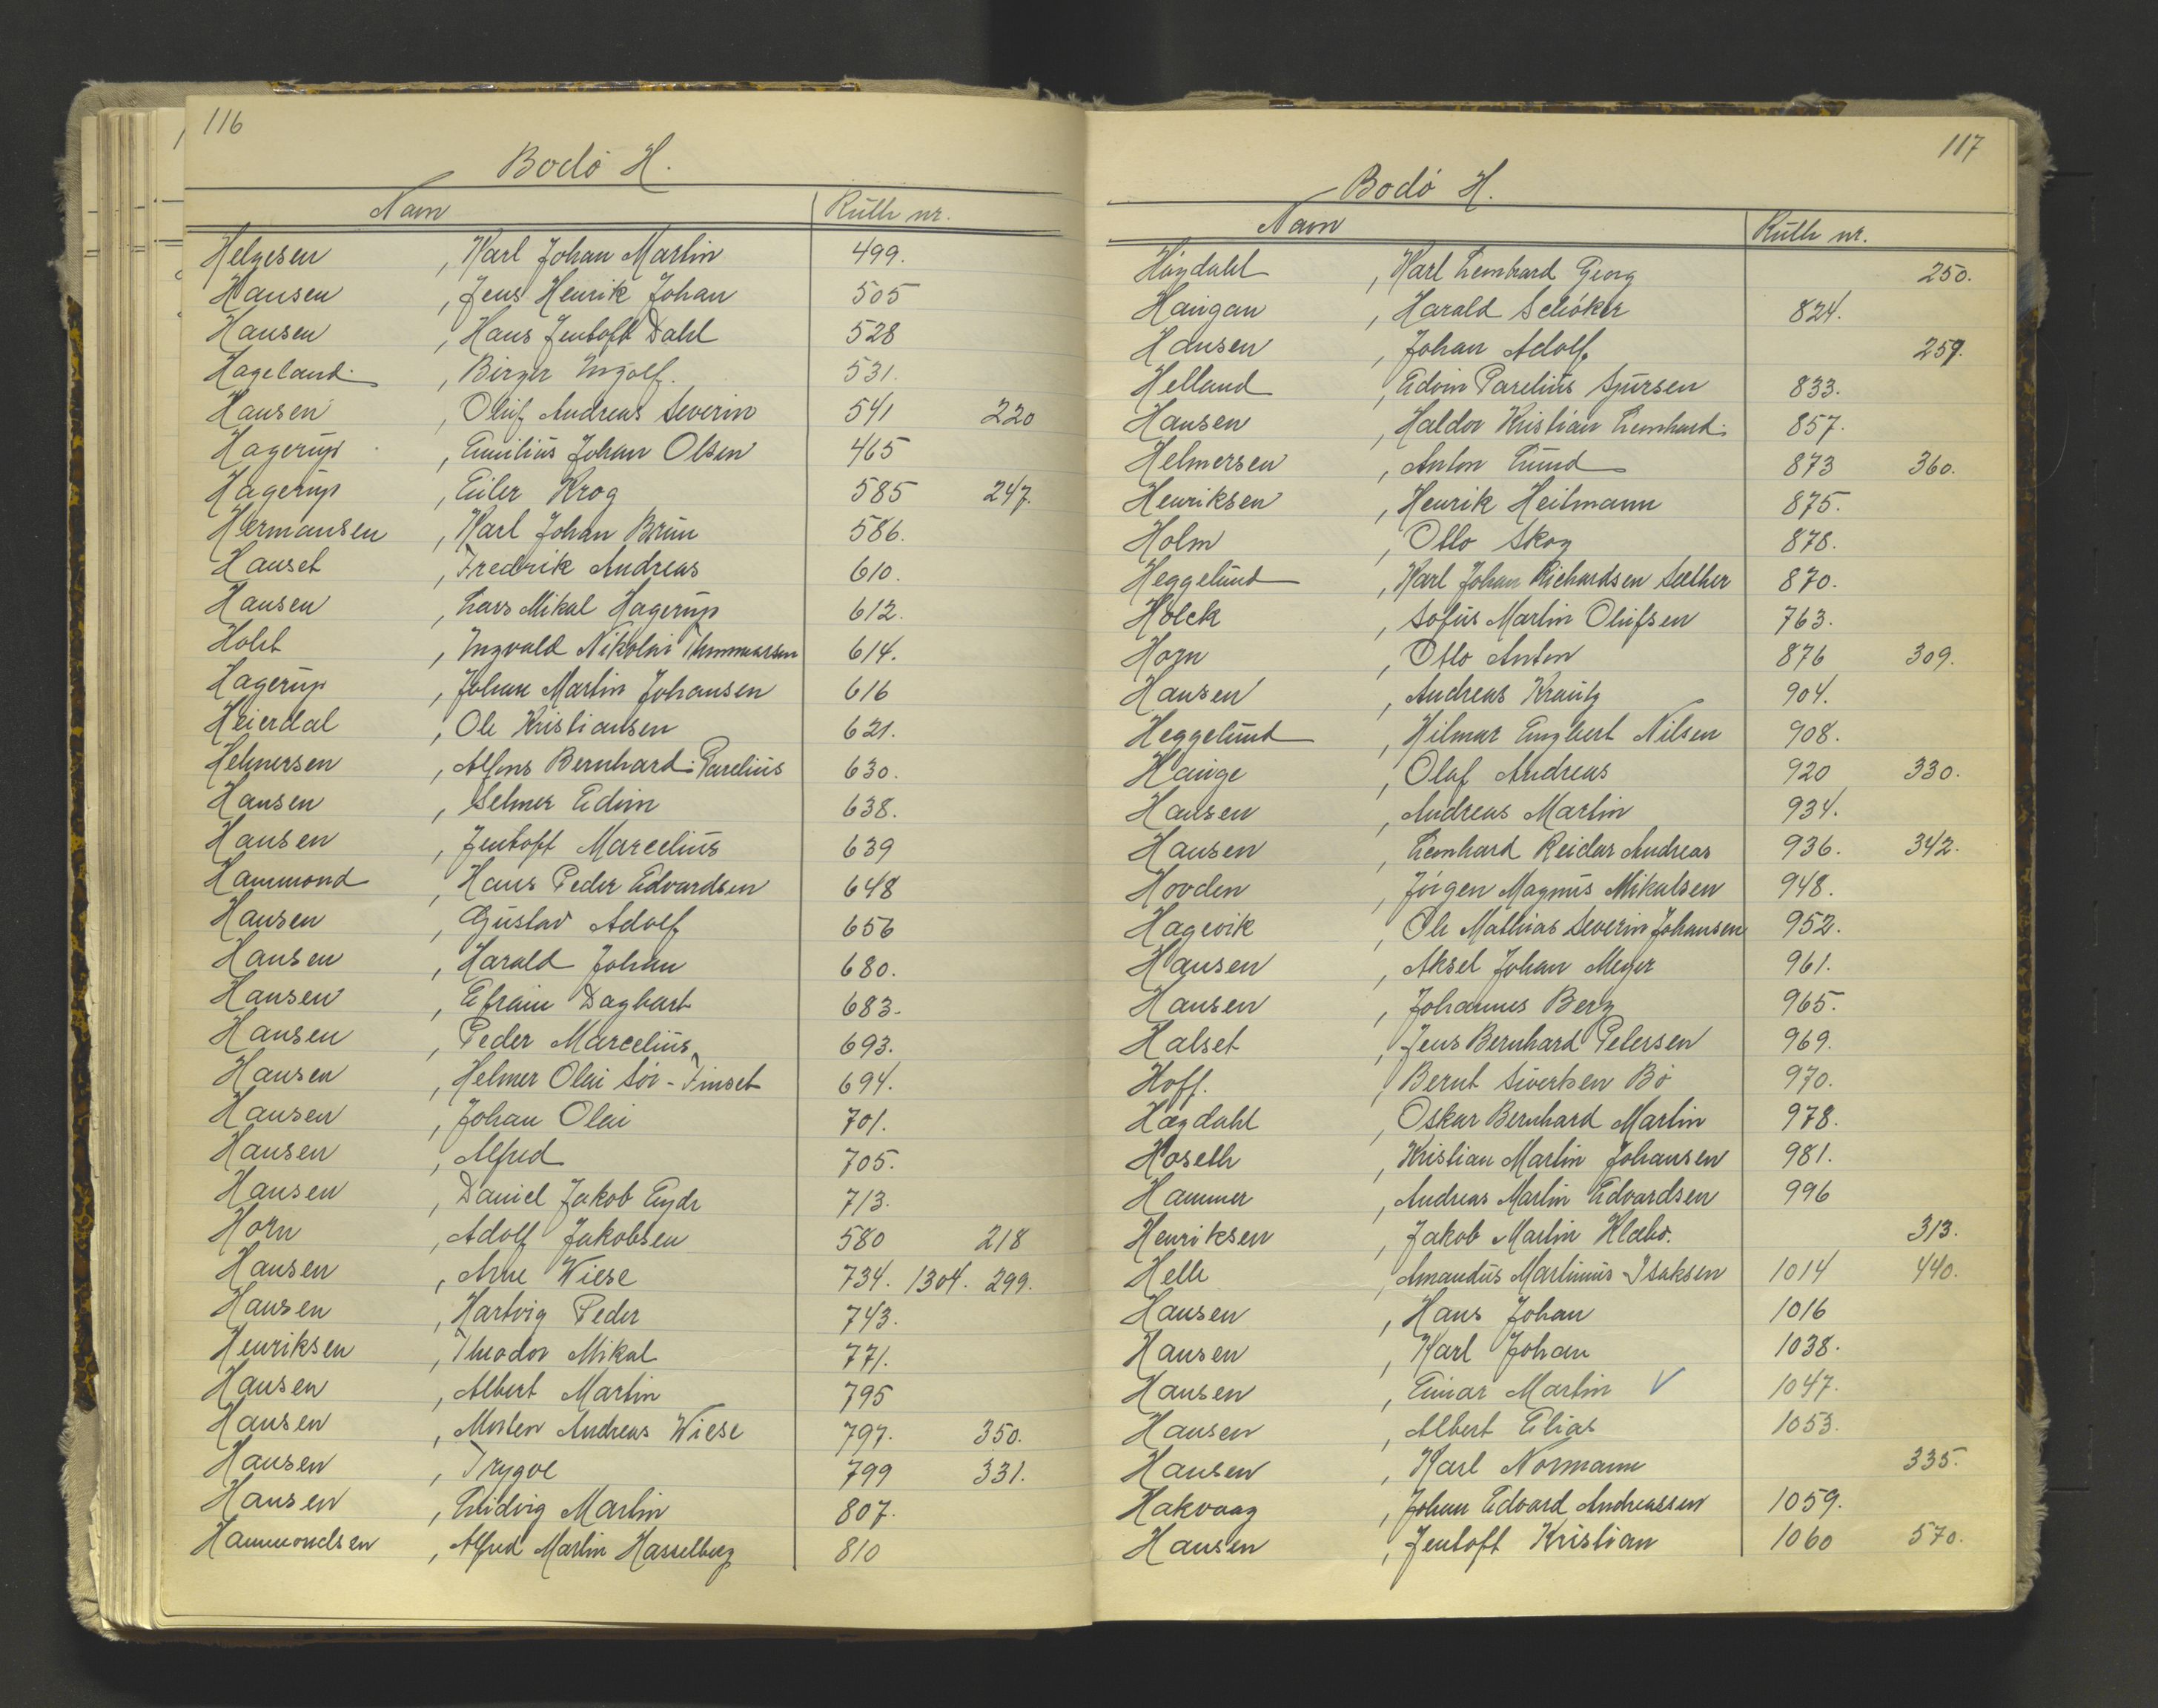 116
Bodø H.
Navn Rulle nr.
Helgesen , Karl Johan Martin 499.
Hansen , Jens Henrik Johan 505
Hansen , Hans Jentoft Dahl 528
Hageland , Birger Ingolf. 531.
Hansen , Oluf Andreas Severin 541 220
Hagerup , Emilius Johan Olsen 465
Hagerup , Eiler Krog 585 247.
Hermansen , Karl Johan Brun 586.
Hauset , Fredrik Andreas 610.
Hansen , Lars Mikal Hagerup 612.
Holst , Ingvald Nikolai 614.
Hagerup , Johan Martin Johansen 616
Heierdal , Ole Kristiansen 621.
Helmersen , Alfons Bernhard Parelius 630.
Hansen , Selmer Edvin 638.
Hansen , Jentoft Marcelius 639
Hammond , Hans Peder Edvardsen 648
Hansen , Gustav Adolf 656
Hansen , Harald Johan 680.
Hansen , Efraim Dagbart 683.
Hansen , Peder Marcelius 693.
Hansen , Helmer Olai Sör-Finset 694.
Hansen , Johan Olai 701.
Hansen , Alfred 705.
Hansen , Daniel Jakob Eyde 713.
Horn , Adolf Jakobsen 580 218
Hansen , Arne Wiese 734. 1304. 299.
Hansen , Hartvig Peder 743.
Henriksen , Theodor Mikal 771.
Hansen , Albert Martin 795
Hansen , Morten Andreas Wiese 797. 350.
Hansen , Trygve 799 331.
Hansen , Ludvig Martin 807.
Hammondsen , Alfred Martin Hasselberg 810
117
Bodø H.
Navn Rulle nr.
Høgdahl , Karl Leonhard Georg 250.
Haugan , Harald Schøker 824.
Hansen , Johan Adolf 259.
Helland , Edvin Parelius Sjursen 833.
Hansen , Haldor Kristian Leonhard 857.
Helmersen , Anton Lund 873 360.
Henriksen , Henrik Heilmann 875.
Holm , Otto Skog 878.
Heggelund , Karl Johan Richardsen Sæther 870.
Holck , Sofus Martin Olufsen 763.
Horn , Otto Anton 876 309.
Hansen , Andreas Krantz 904.
Heggelund , Hilmar Engbert Nilsen 908.
Hauge , Olaf Andreas 920 330.
Hansen , Andreas Martin 934.
Hansen , Leonhard Reidar Andreas 936. 342.
Hovden , Jörgen Magnus Mikalsen 948.
Hagevik , Ole Mathias Severin Johansen 952.
Hansen , Aksel Johan Meyer 961.
Hansen , Johannes Berg 965.
Halset , Jens Bernhard Petersen 969.
Hoff. , Bernt Sivertsen Bö 970.
Hægdahl , Oskar Bernhard Martin 978.
Hoseth , Kristian Martin Johansen 981.
Hammer , Andreas Martin Edvardsen 996
Henriksen , Jakob Martin Klæbo. 313.
Helle , Amandus Martinius Isaksen 1014 440.
Hansen , Hans Johan 1016
Hansen , Karl Johan 1038.
Hansen , Einar Martin V 1047.
Hansen , Albert Elias 1053.
Hansen , Karl Normann 335.
Hakvaag , Johan Edvard Andreassen 1059.
Hansen , Jentoft Kristian 1060 570.